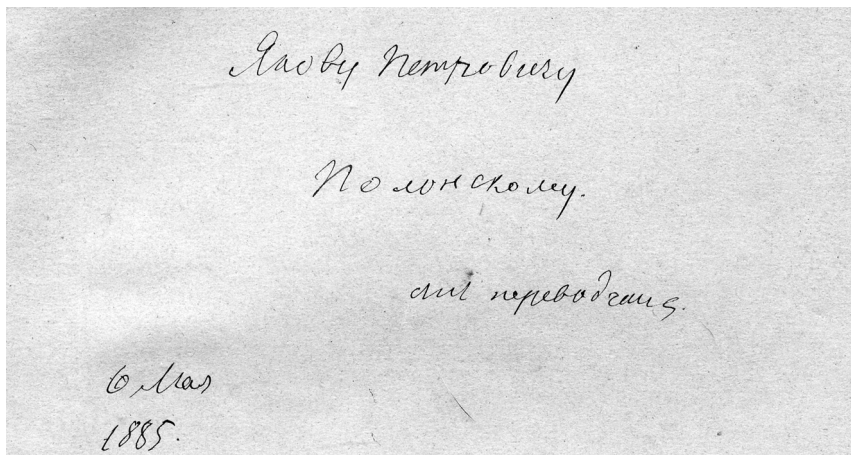 Якову Петровичу
Полонскому.
переводчица.
6 Мая
1885.